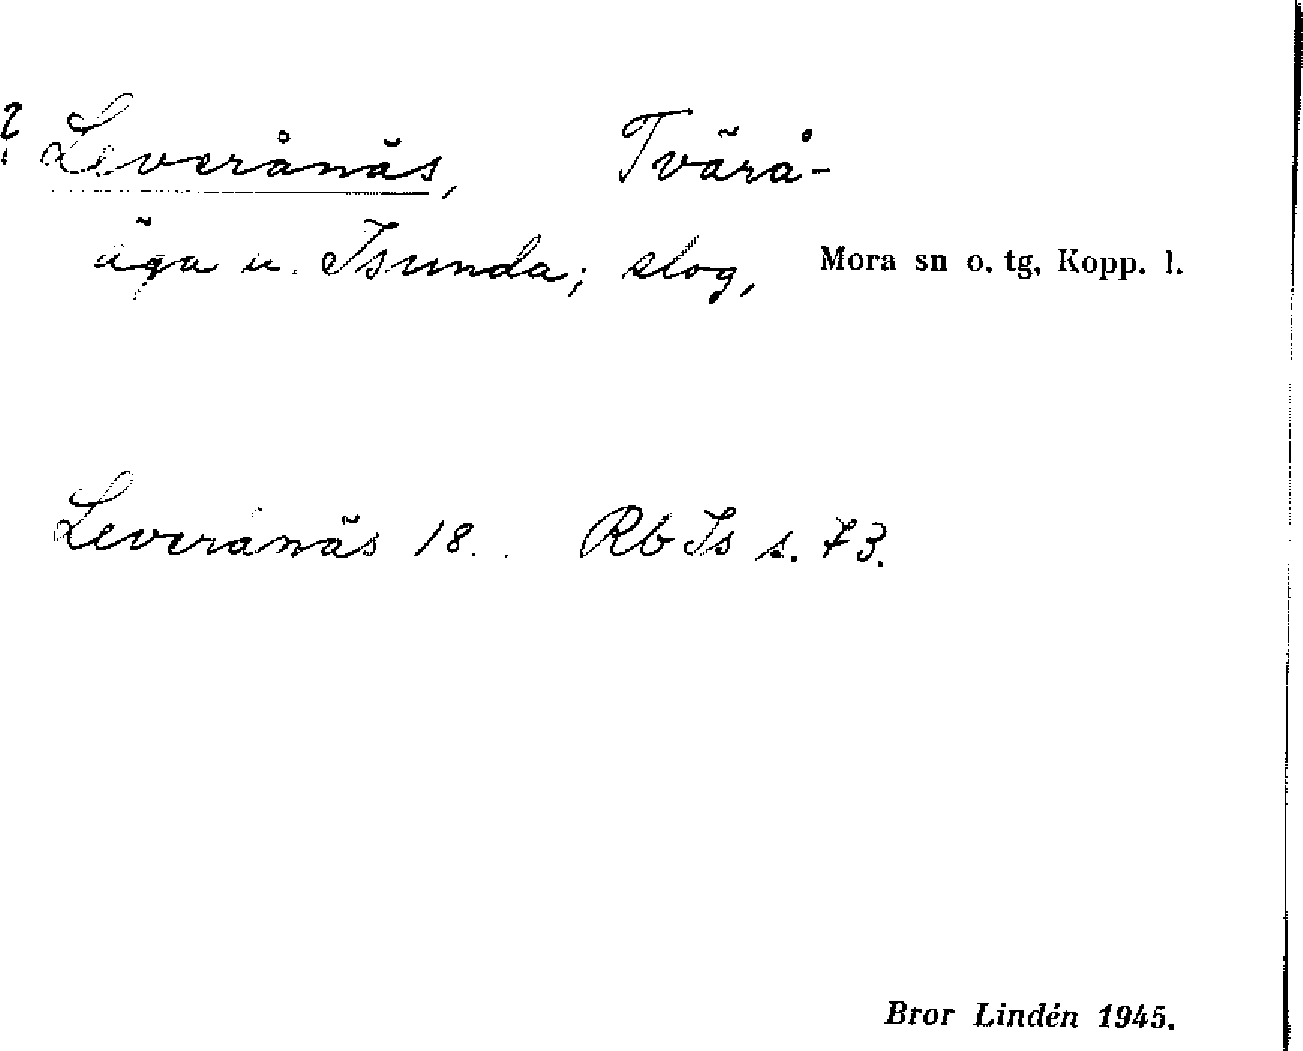 ? Leveränäs, Tvärå-
äga u. Isunda; slog, Mora sn o. tg, Kopp. l.
Leveränäs 18.. Rb Is s. 73.
Bror Lindén 1945.